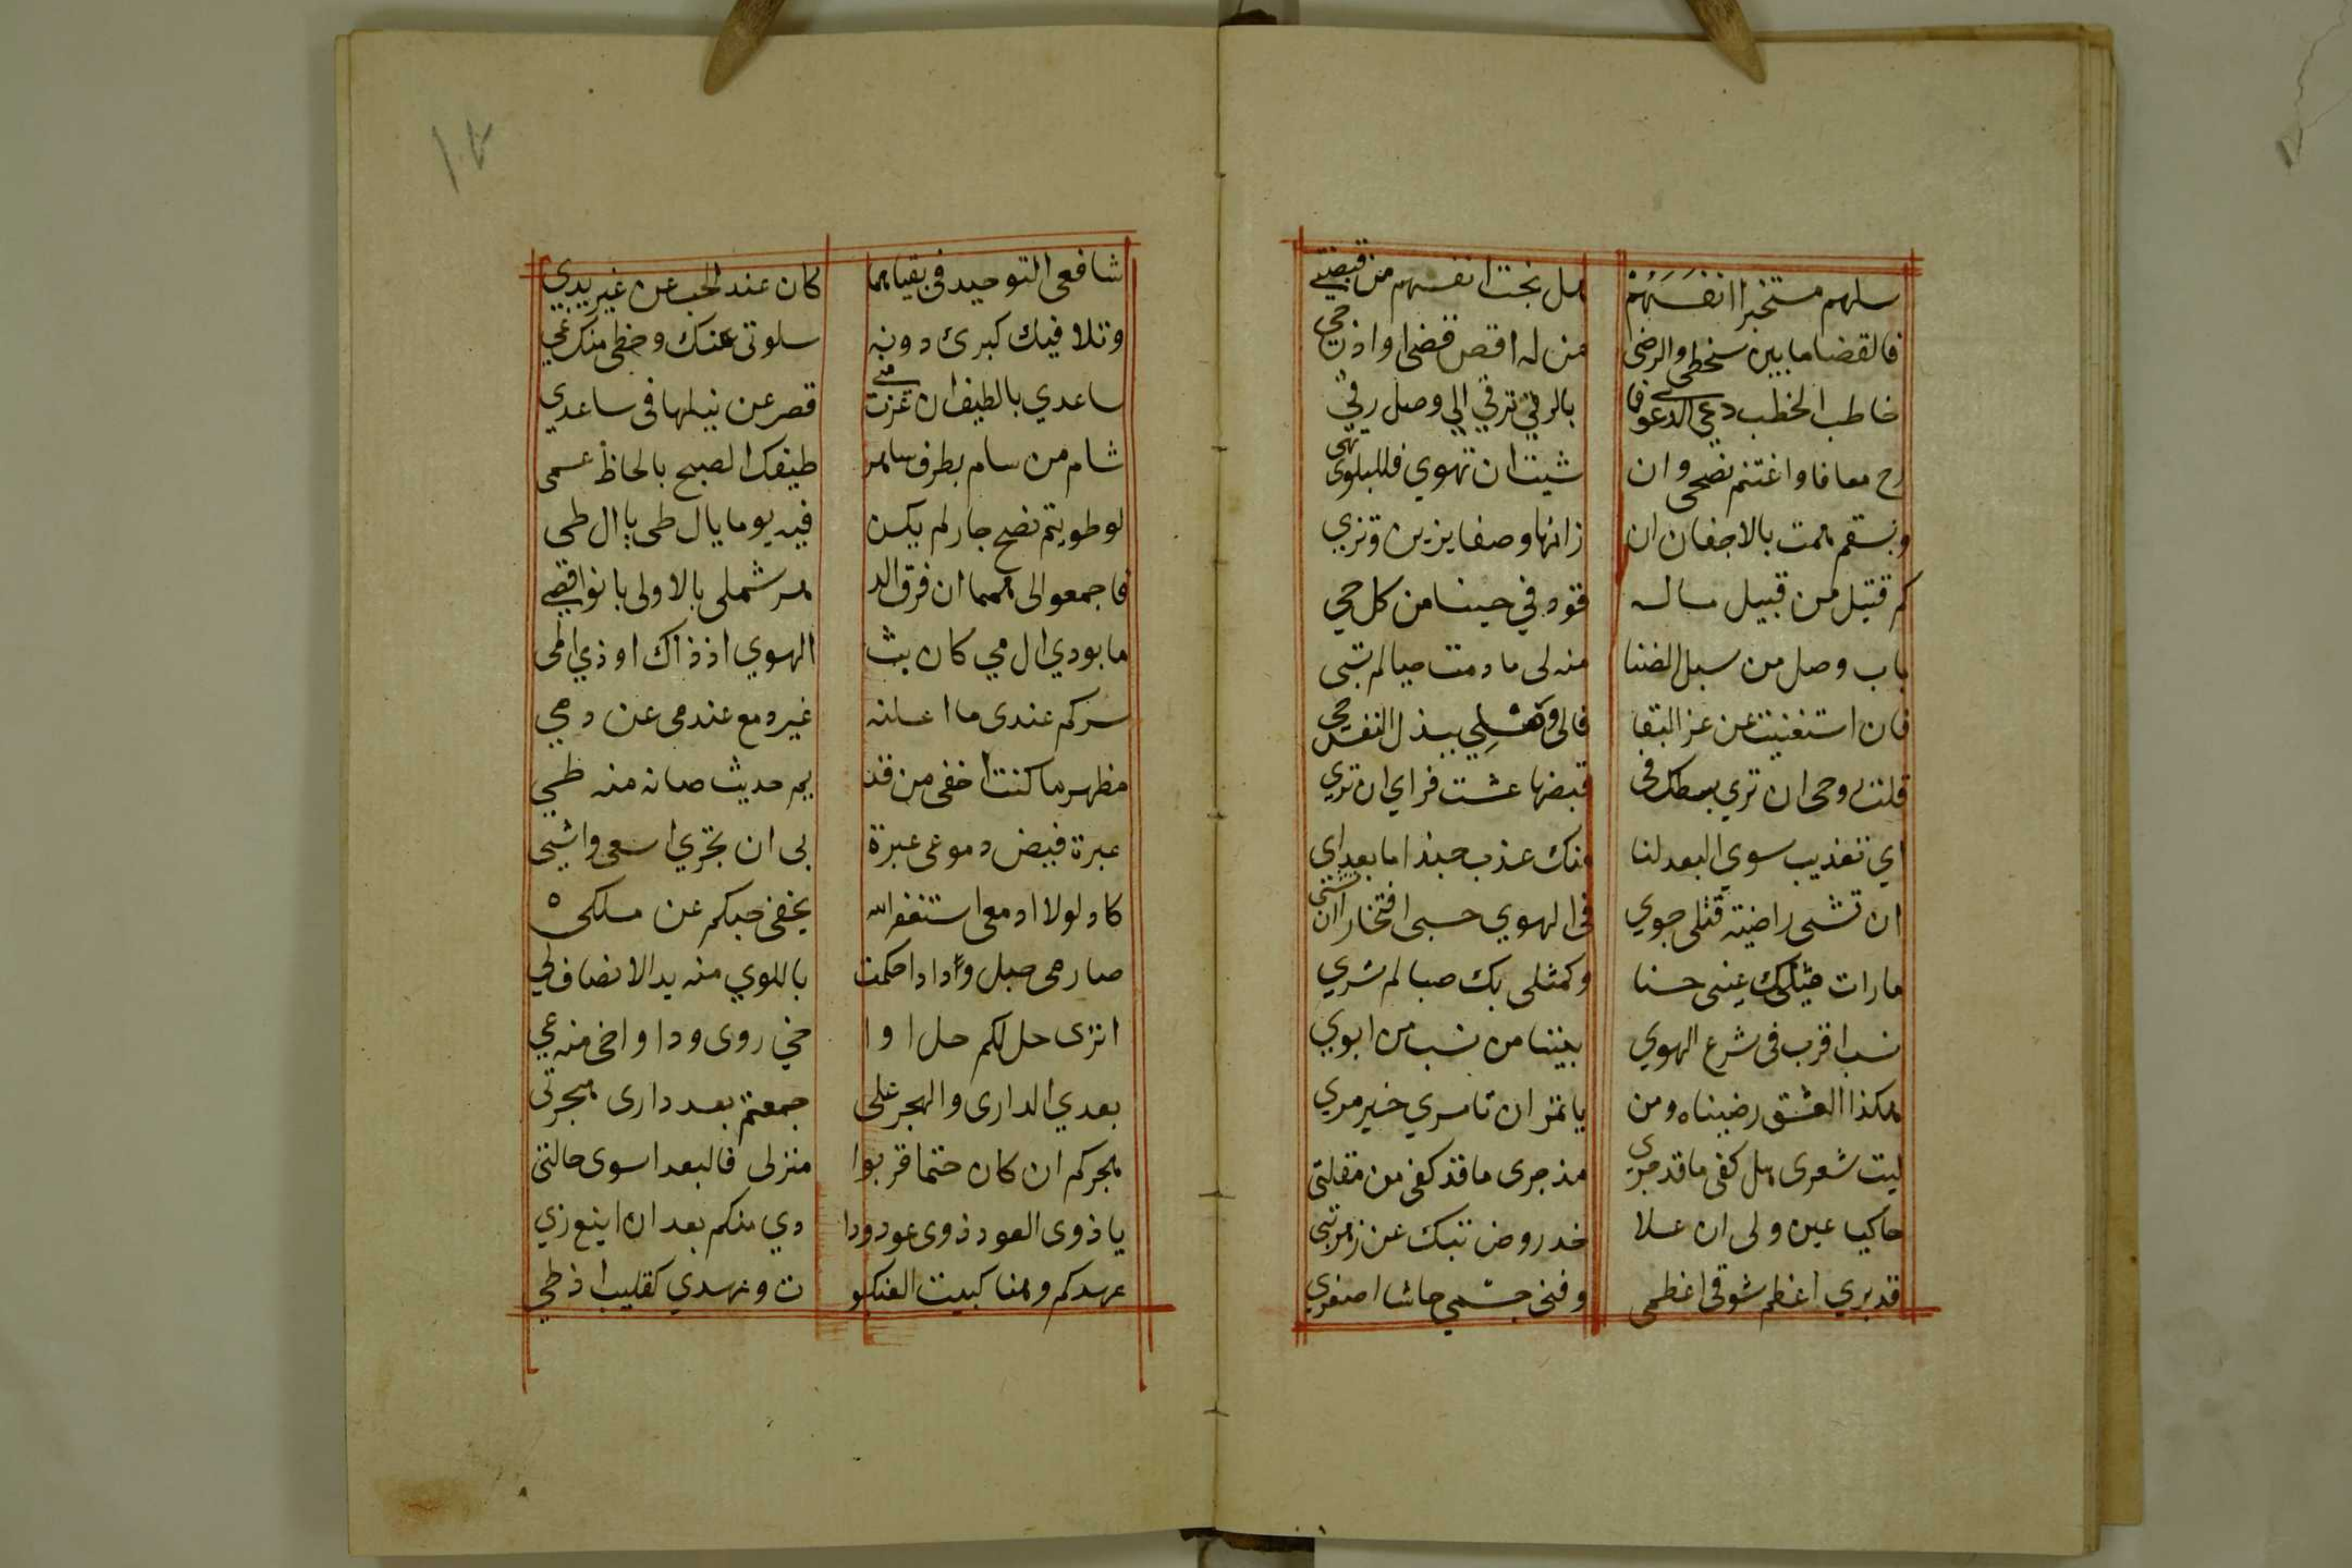 سلهم مستخبرا انفسهم هل نجت انفسهم من قبضتي
فالقضا ما بين سخطي والرضى من له اقص قضى او اذن حي
خاطب الخطب دعي الدعوى فما بالرقي ترقي الي وصل رقي
رح معافا واغتنم نصحي وان شيت ان تهوي فللبلوى تهي
وبسقم همت بالاجفان ان زانها وصفا بزين وتزي
كم قتيل من قبيل ماله قود في حبنا من كل حي
باب وصل من سبل الضنا منه لى ما دمت حيا لم تبى
فان استغنيت عن عز البقا فالى وصلي ببذل النفس حي
قلت روحى ان تري بسطك فى قبضها عشت فراي ان تري
اي تعذيب سوي البعد لنا منك عذب حبذا ما بعد اي
ان تشى راضية قتلى جوي فى الهوي حسبى افتخارا ان تشي
ما رات مثلك عينى حسنا وكمثلى بك صبا لم تري
نسب اقرب فى شرع الهوي بيننا من نسب من ابوي
هكذا العشق رضيناه ومن ياتمر ان تامري خير مري
ليت شعرى هل كفى ما قد جرى مذ جرى ما قد كفى من مقلتى
حاكيا عين ولى ان علا خد روض تبك عن زهر تبى
قد بري اعظم شوقى اعظمى وفنى جسمي حاشا اصغري
شافعى التوحيد فى بقياهما كان عند الحب عن غير يدي
وتلافيك كبرئ دونه سلوتى عنك وحظى منك عي
ساعدي بالطيف ان عزت منى قصر عن نيلها فى ساعدي
شام من سام بطرف ساهر طيفك الصبح بالحاظ عمى
لو طويتم نصح جار لم يكن فيه يوما يال طى يال طى
فاجمعوا لى همما ان فرق الد هر شملى بالاولى بانوا قصي
ما بودي ال مي كان بث الهوي اذ ذاك اوذي المى
سركم عندى ما اعلنه غير دمع عندمى عن دمي
مظهر ما كنت اخفى من قد يم حديث صانه منه طي
عبرة فيض دموعى عبرة بى ان تجري اسعى واشيى
كاد لولا ادمعى استغفر الله يخفى حبكم عن ملكى ٥
صارمى حبل وداد احكمت باللوي منه يد الانصاف لي
اترى حل لكم حل اوا خي روى ودا واخى منه عي
بعدي الدارى والهجر على جمعتم بعد دارى هجرتى
هجركم ان كان حتما قربوا منزلى فالبعد اسوى حالتى
يا ذوى العود ذوى عود ودا دي منكم بعد ان اينع زي
عهدكم وهنا كبيت العنكبو ت وعهدي كقليب اذ طي